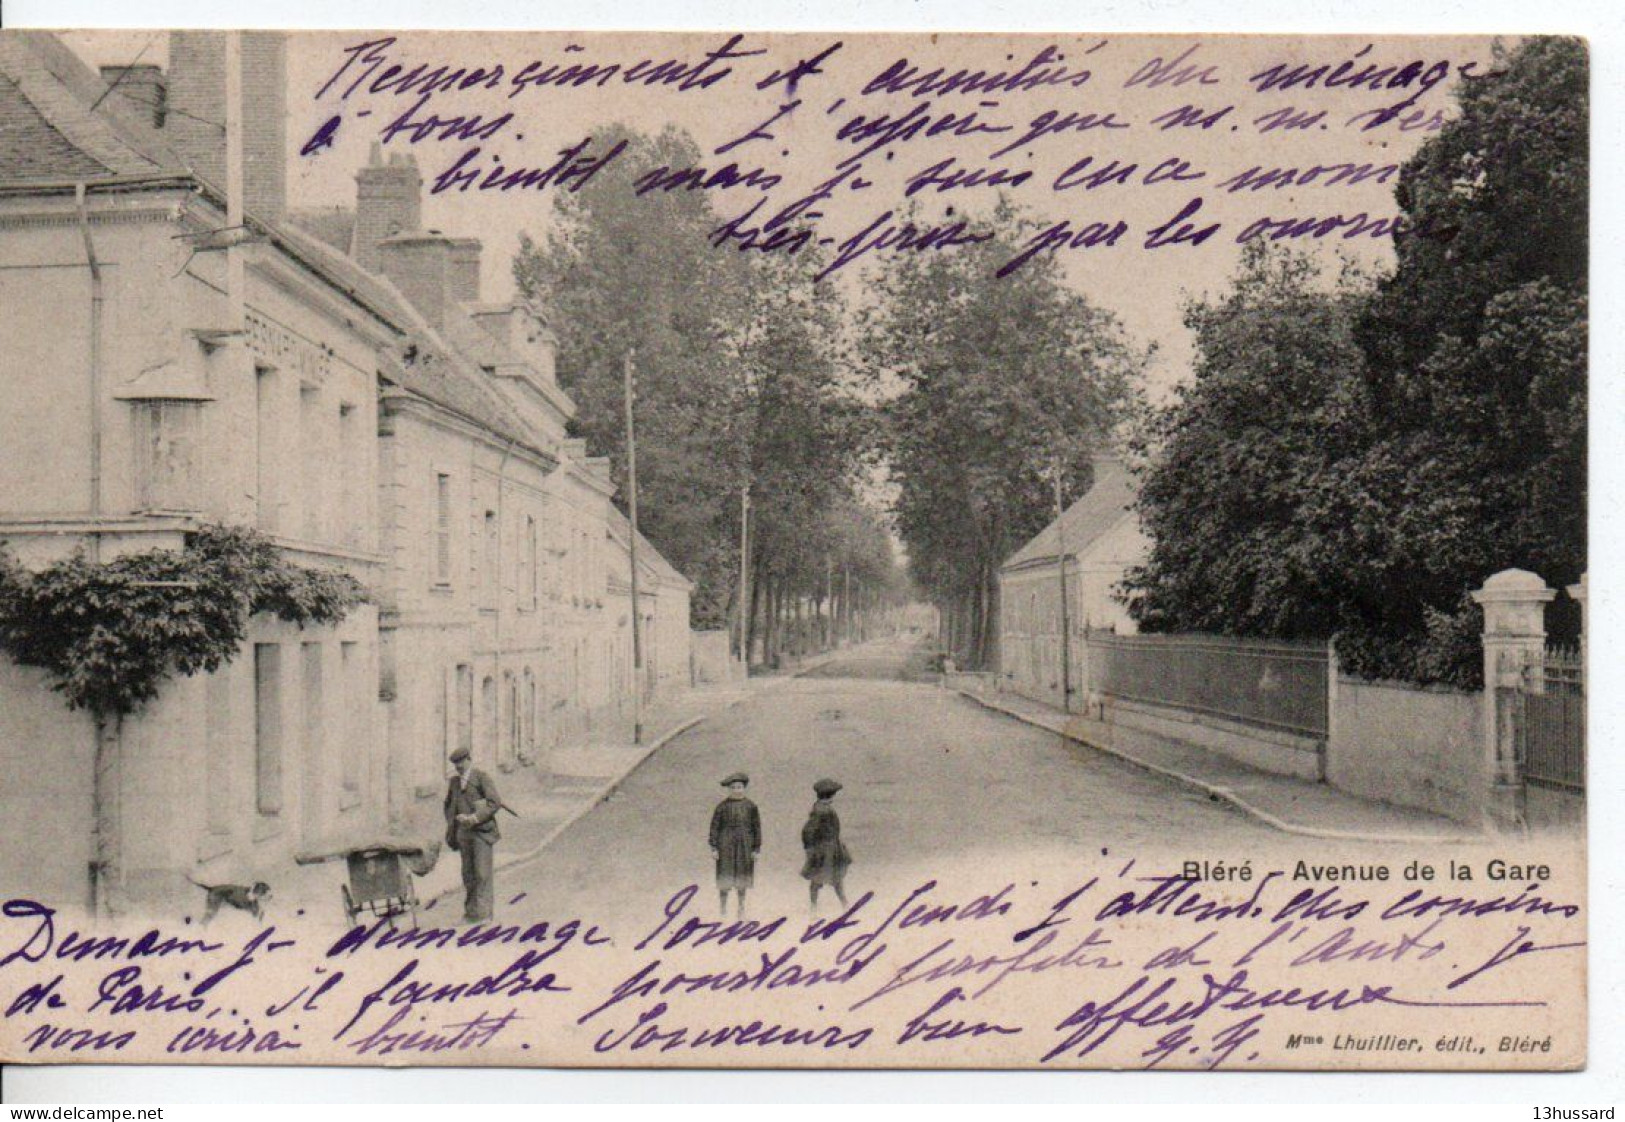 Remerciments et amitiés du ménage
à tous. J'espère que ns. ns. ver
bientôt mais je suis en ce mom
très-prise par les
Bléré - Avenue de la Gare
Demain je déménage Tours et Jeudi j'attends des cousins
de Paris, il faudra pourtant profiter de l'auto. Je
vous écrirai bientôt. Souvenirs bien affectueux
Mme Lhuillier, édit., Bléré
delcampe.net
13hussard